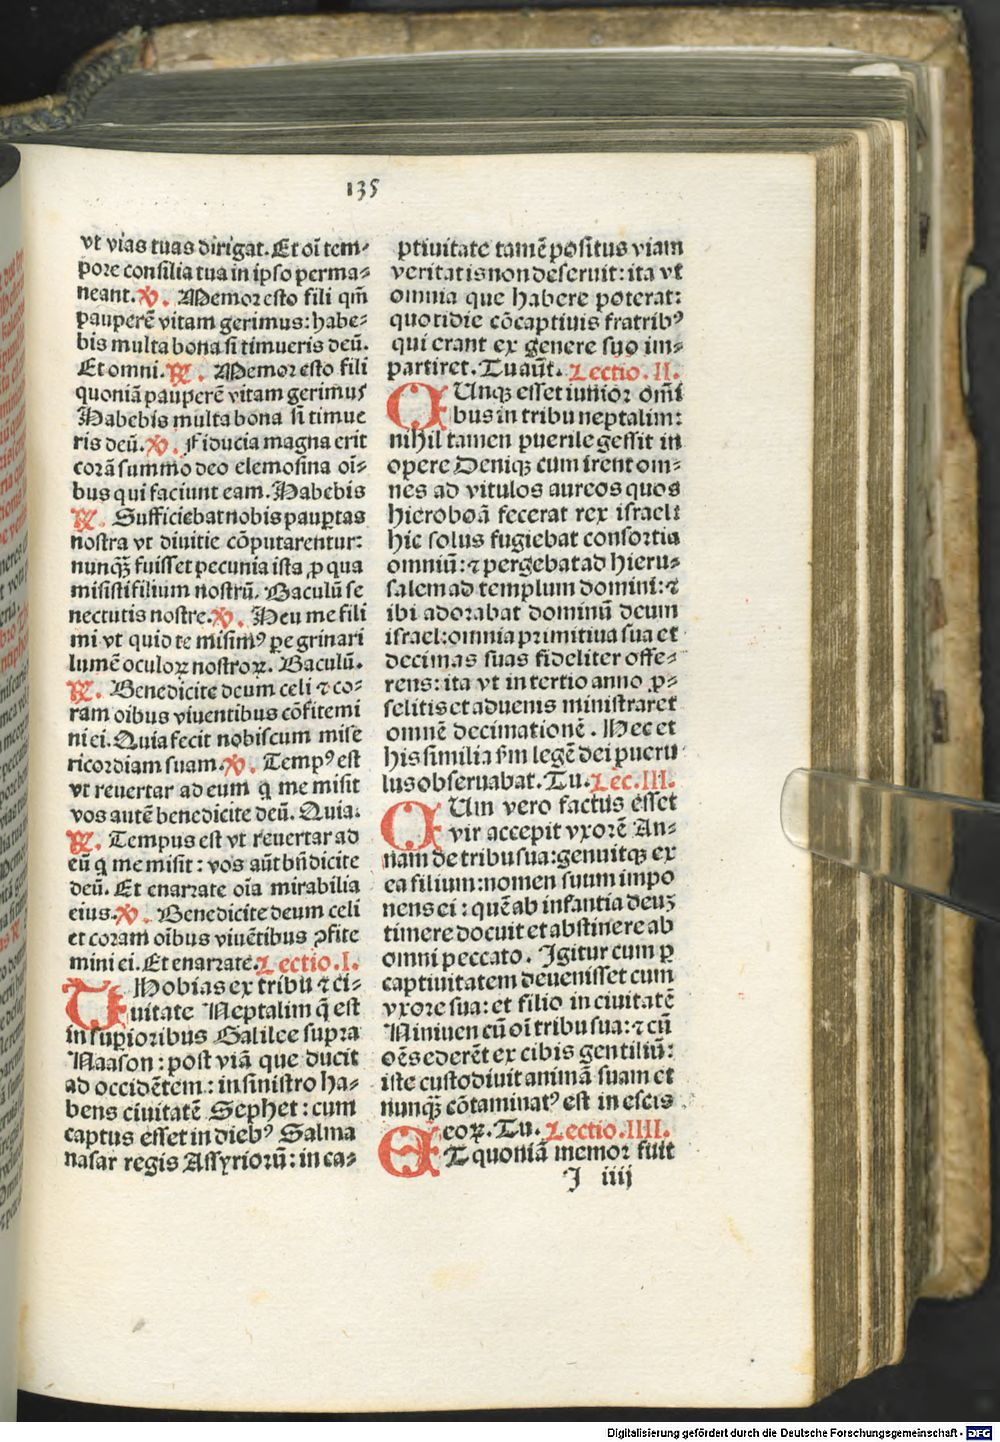 135
vt vias tuas dirigat. Et oī tem⸗
pore consilia tua in ipso perma⸗
neant. ℣. Memor esto fili qm̄
pauperē vitam gerimus: habe⸗
bis multa bona si timueris deū.
Et omni. ℟. Memor esto fili
quoniā pauperē vitam gerimus
Habebis multa bona si timue
ris deū. ℣. Fiducia magna erit
corā summo deo elemosina oī⸗
bus qui faciunt eam. Habebis
℟. Sufficiebat nobis paup̱tas
nostra vt diuitie cōputarentur:
nunqꝫ fuisset pecunia ista ꝓ qua
misisti filium nostrū. Baculū se
nectutis nostre. ℣. Heu me fili
mi vt quid te misimꝰ pegrinari
lumē oculoꝝ nostroꝝ. Baculū.
℟. Benedicite deum celi ⁊ co⸗
ram oībus viuentibus cōfitemi
ni ei. Quia fecit nobiscum mise
ricordiam suam. ℣. Tempꝰ est
vt reuertar ad eum q̄ me misit
vos autē benedicite deū. Quia.
℟. Tempus est vt reuertar ad
eū q̄ me misit: vos aūt bn̄dicite
deū. Et enarrate oīa mirabilia
eius. ℣. Benedicite deum celi
et coram oībus viuētibus ꝯfite
mini ei. Et enarrate. Lectio. I.
THobias ex tribu ⁊ ci⸗
uitate Neptalim q̄ est
in sup̱ioribus Galilee supra
Naason: post viā que ducit
ad occidētem: in sinistro ha⸗
bens ciuitatē Sephet: cum
captus esset in diebꝰ Salma
nasar regis Assyriorū: in ca⸗
ptiuitate tamē positus viam
veritatis non deseruit: ita vt
omnia que habere poterat:
quotidie cōcaptiuis fratribꝰ
qui erant ex genere suo im⸗
partiret. Tu aūt. Lectio. II.
CUnqꝫ esset iunior omī
bus in tribu neptalim:
nihil tamen puerile gessit in
opere Deniqꝫ cum irent om⸗
nes ad vitulos aureos quos
hieroboā fecerat rex israel:
hic solus fugiebat consortia
omniū: ⁊ pergebat ad hieru⸗
salem ad templum domini: ⁊
ibi adorabat dominū deum
israel: omnia primitiua sua et
decimas suas fideliter offe⸗
rens: ita vt in tertio anno ꝓ⸗
selitis et aduenis ministraret
omnē decimationē. Hec et
his similia sm̄ legē dei pueru
lus obseruabat. Tu. Lec. III.
CUm vero factus esset
vir accepit vxorē An⸗
nam de tribu sua: genuitqꝫ ex
ea filium: nomen suum impo
nens ei: quē ab infantia deuꝫ
timere docuit et abstinere ab
omni peccato. Igitur cum ꝑ
captiuitatem deuenisset cum
vxore sua: et filio in ciuitatē
Niniuen cū oī tribu sua: ⁊ cū
oēs ederēt ex cibis gentiliū:
iste custodiuit animā suam et
nunqꝫ cōtaminatꝰ est in escis
eoꝝ. Tu. Lectio. IIII.
ET quoniā memor fuit
I iiij
Digitalisierung gefördert durch die Deutsche Forschungsgemeinschaft - DFG